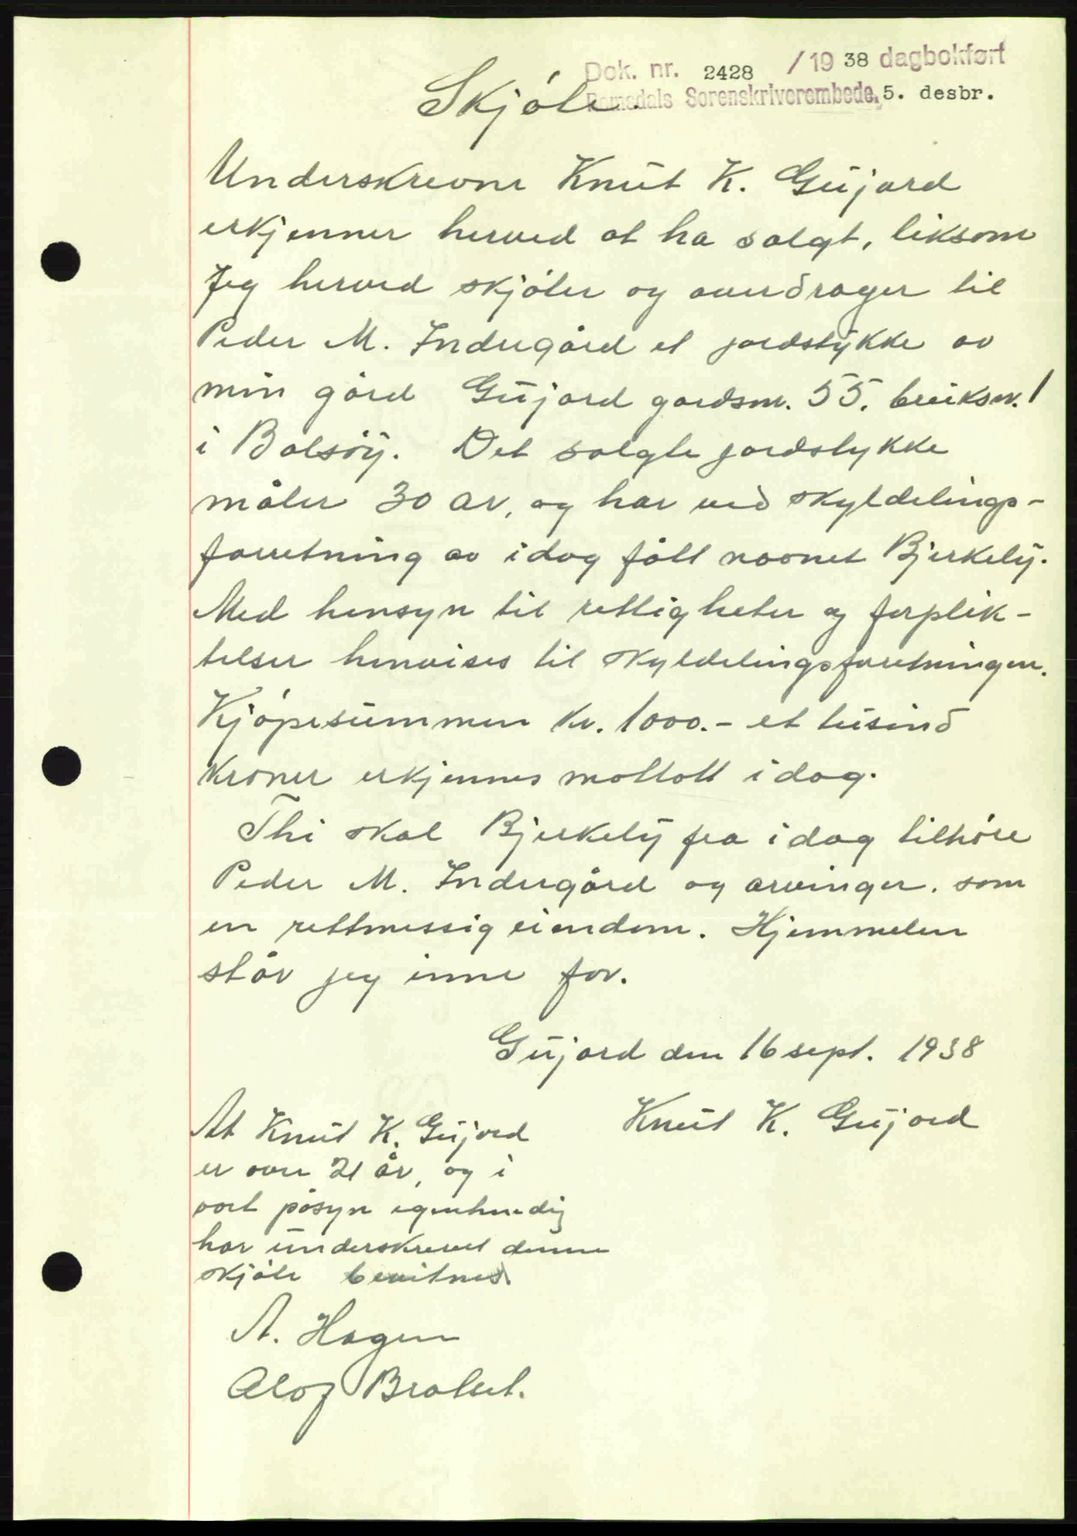 Dok. nr. 2428 / 19 38 dagbokført
Romsdals Sorenskriverembede, 5. desbr.
Skjöte.
Underskrevne Knut K. Gujord
erkjenner herved at ha solgt, liksom
jeg herved skjöter og overdrager til
Peder M. Indergård et jordstykke av
min gård Gujord gardsnr. 55. bruksnr. 1
i Bolsöy. Det solgte jordstykke
måler 30 ar, og har ved skyldelings-
forretning av idag fått navnet Bjerkely.
Med hensyn til rettigheter og forplik-
telser henvises til skyldelingsforretningen.
Kjöpesummen kr. 1000.- et tusind
kroner erkjennes mottatt idag.
Thi skal Bjerkely fra idag tilhöre
Peder M. Indergård og arvinger. som
en rettmessig eiendom. Hjemmelen
står jeg inne for.
Gujord den 16 sept. 1938
Knut K. Gujord
At Knut K. Gujord
er over 21 år, og i
vort påsyn egenhendig
har underskrevet denne
skjöte bevitnes
A. Hagen
Olof Brakst.